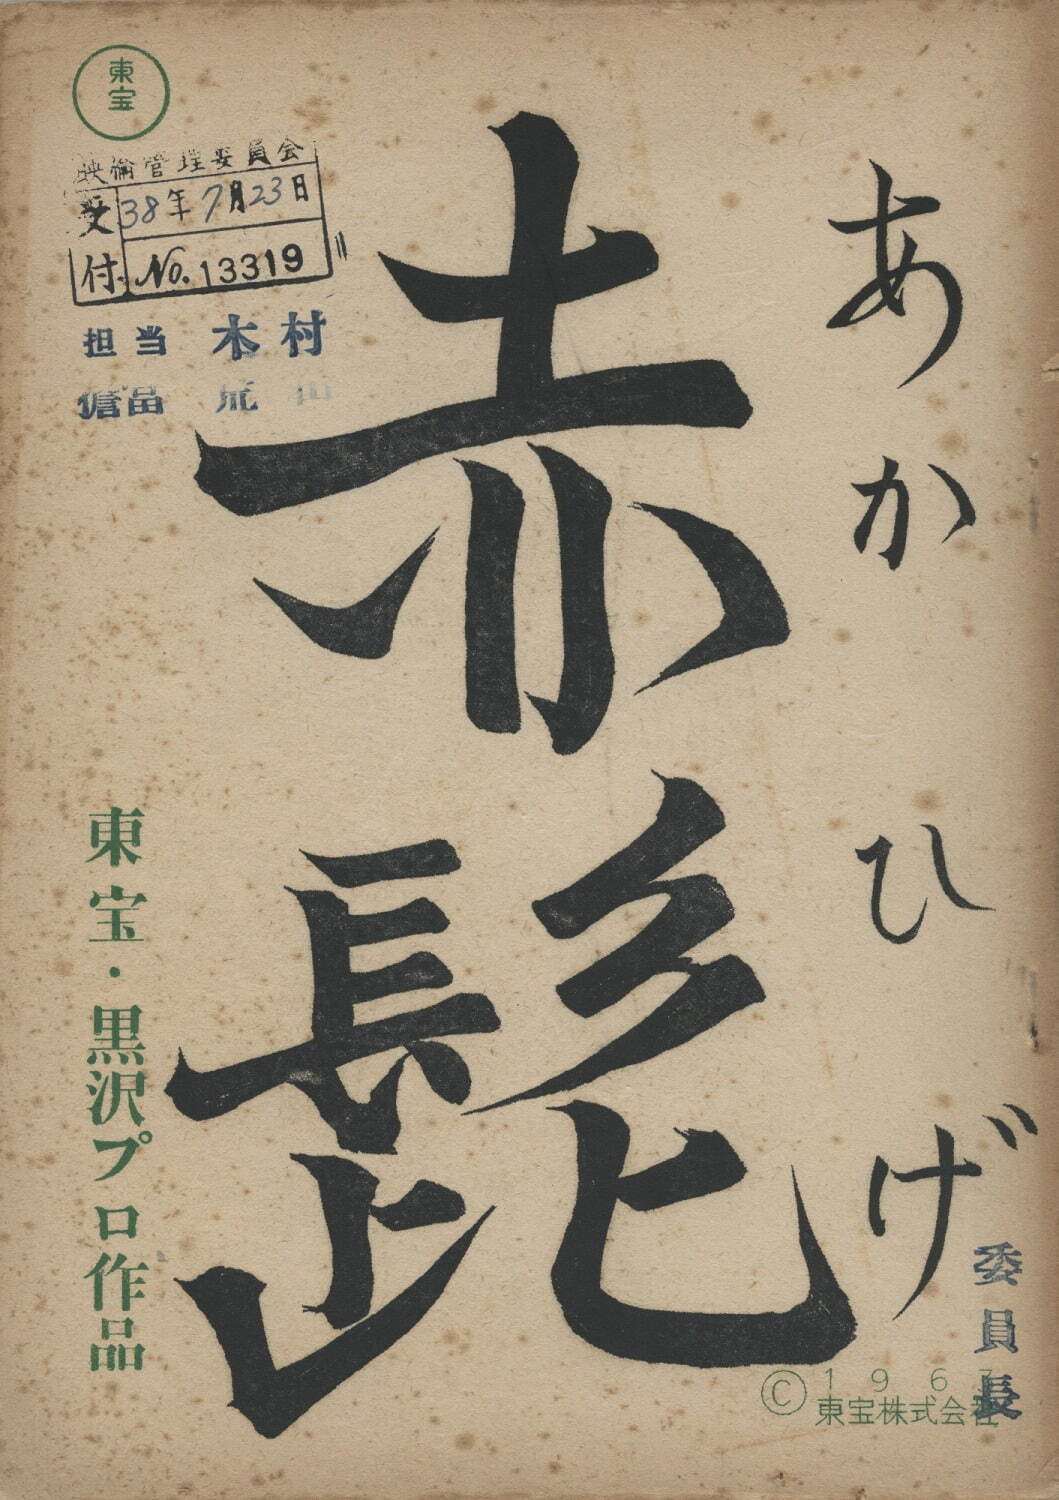 東宝
映倫管理委員会
受付
38年7月23日
No. 13319
担当 木村
赤髭
あかひげ
東宝・黒沢プロ作品
委員長
© 1963
東宝株式会社